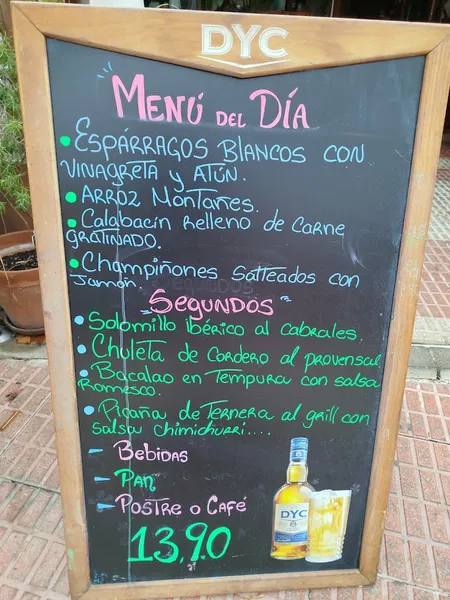 DYC
MENÚ DEL DÍA
• ESPÁRRAGOS BLANCOS CON
VINAGRETA Y ATÚN.
• ARROZ MONTAÑES.
• Calabacín Relleno de Carne
GRATINADO.
• Champiñones Salteados con
Jamón.
"SEGUNDOS"
• Solomillo ibérico al cabrales.
• Chuleta de Cordero al provensal
• Bacalao en Tempura con salsa
Romesco.
• Picaña de Ternera al grill con
salsa chimichurri....
- BEBIDAS
- PAN
- POSTRE O CAFÉ
13,90
DYC
8